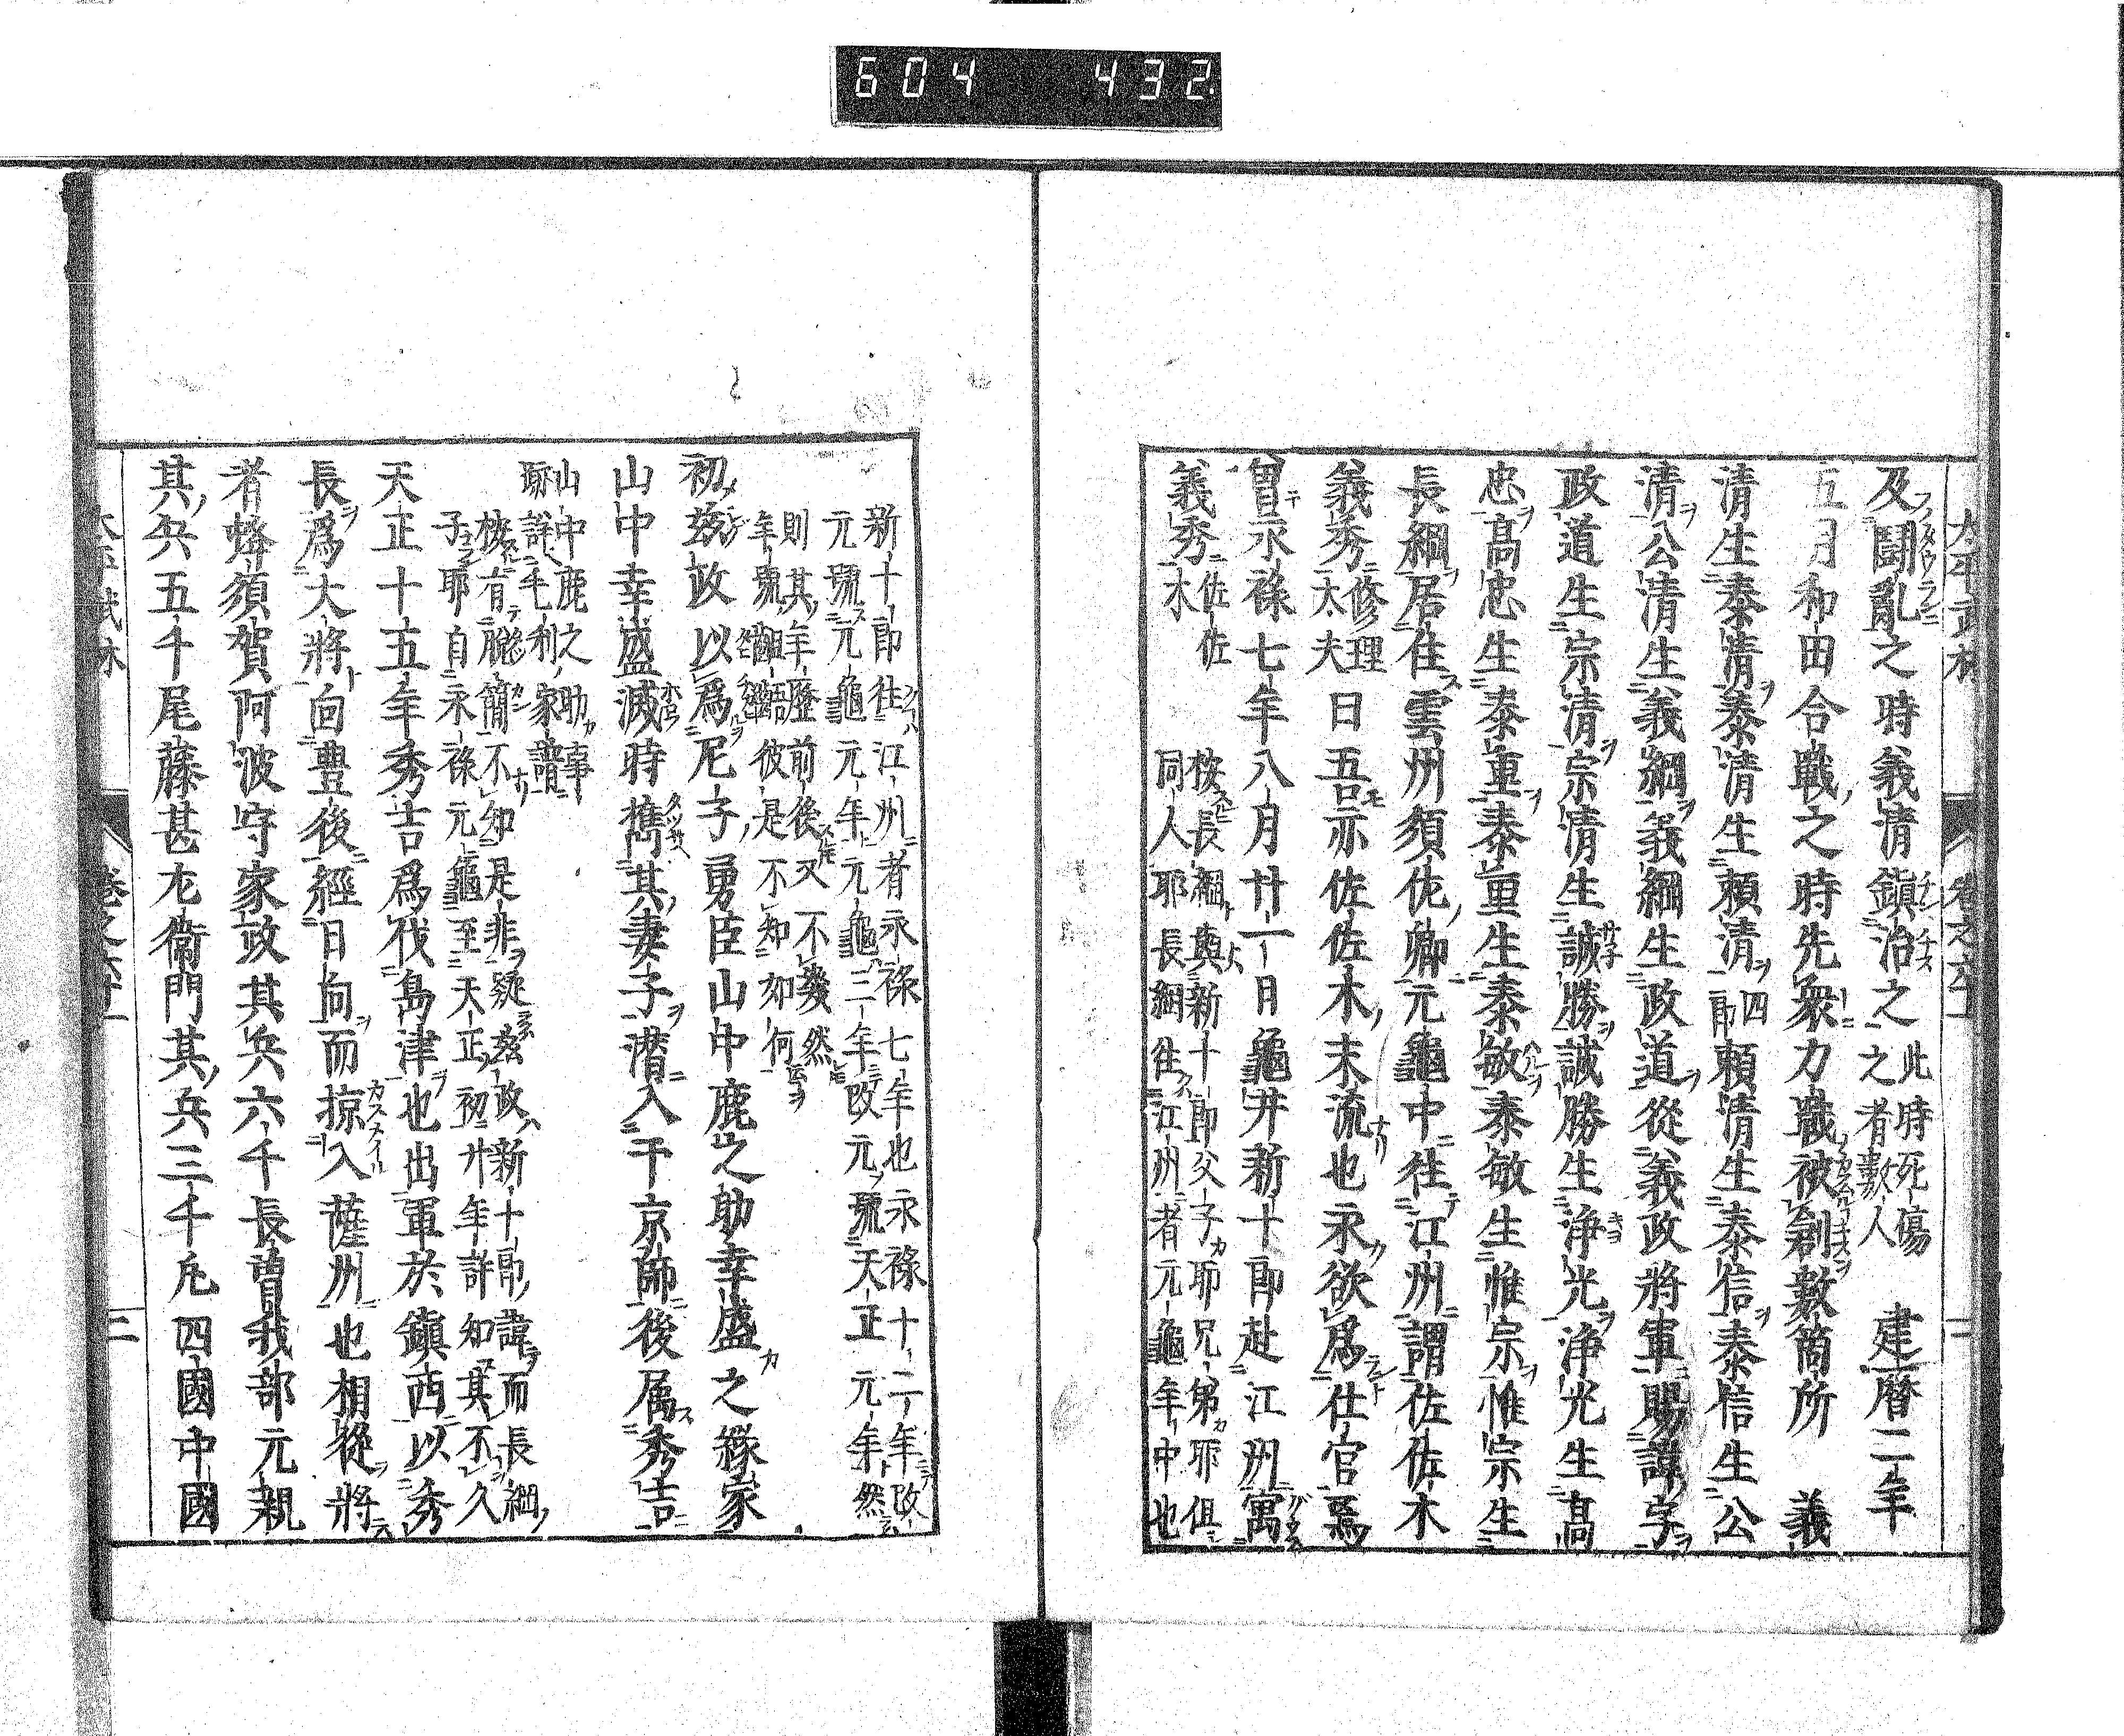 604 432
太平武林 卷之六十一
及鬪亂之時義清鎭治之此時死傷之者數人 建暦二年
五月和田合戰之時先衆力戰被創數箇所 義
清生泰清泰清生賴清四郎賴清生泰信泰信生公
清公清生義綱義綱生政道從義政將軍賜諱字
政道生宗清宗清生誠勝誠勝生浄光浄光生髙
忠髙忠生泰重泰重生泰敏泰敏生惟宗惟宗生
長綱居住雲州須佐卿元龜中往江州謂佐佐木
義秀修理太夫曰吾亦佐佐木末流也永欲爲仕官焉
曽永祿七年八月廿一日龜井新十郎赴江州寓
義秀佐佐木 桉長綱與新十郎父子耶兄弟耶俱
同人耶長綱往江州者元龜年中也
新十郎往江州者永祿七年也永祿十二年改
元號元龜元年元龜三年改元號天正元年然
則其年歷前後又不幾然
年號齟齬彼是不知如何
初玆政以爲尼子勇臣山中鹿之助幸盛之緣家
山中幸盛滅時携其妻子潜入于京師後属秀吉
山中鹿之助事
詳毛利家譜
桉有脱簡不知是非疑玆政新十郎諱而長綱
子耶自永祿元龜至天正初廾年許知其不久
天正十五年秀吉爲伐島津也出軍於鎭西以秀
長爲大將向豐後經日向而掠入薩州也相從將
者蜂須賀阿波守家政其兵六千長曽我部元親
其兵五千尾藤甚左衞門其兵三千凡四國中國
卷之六十一 二